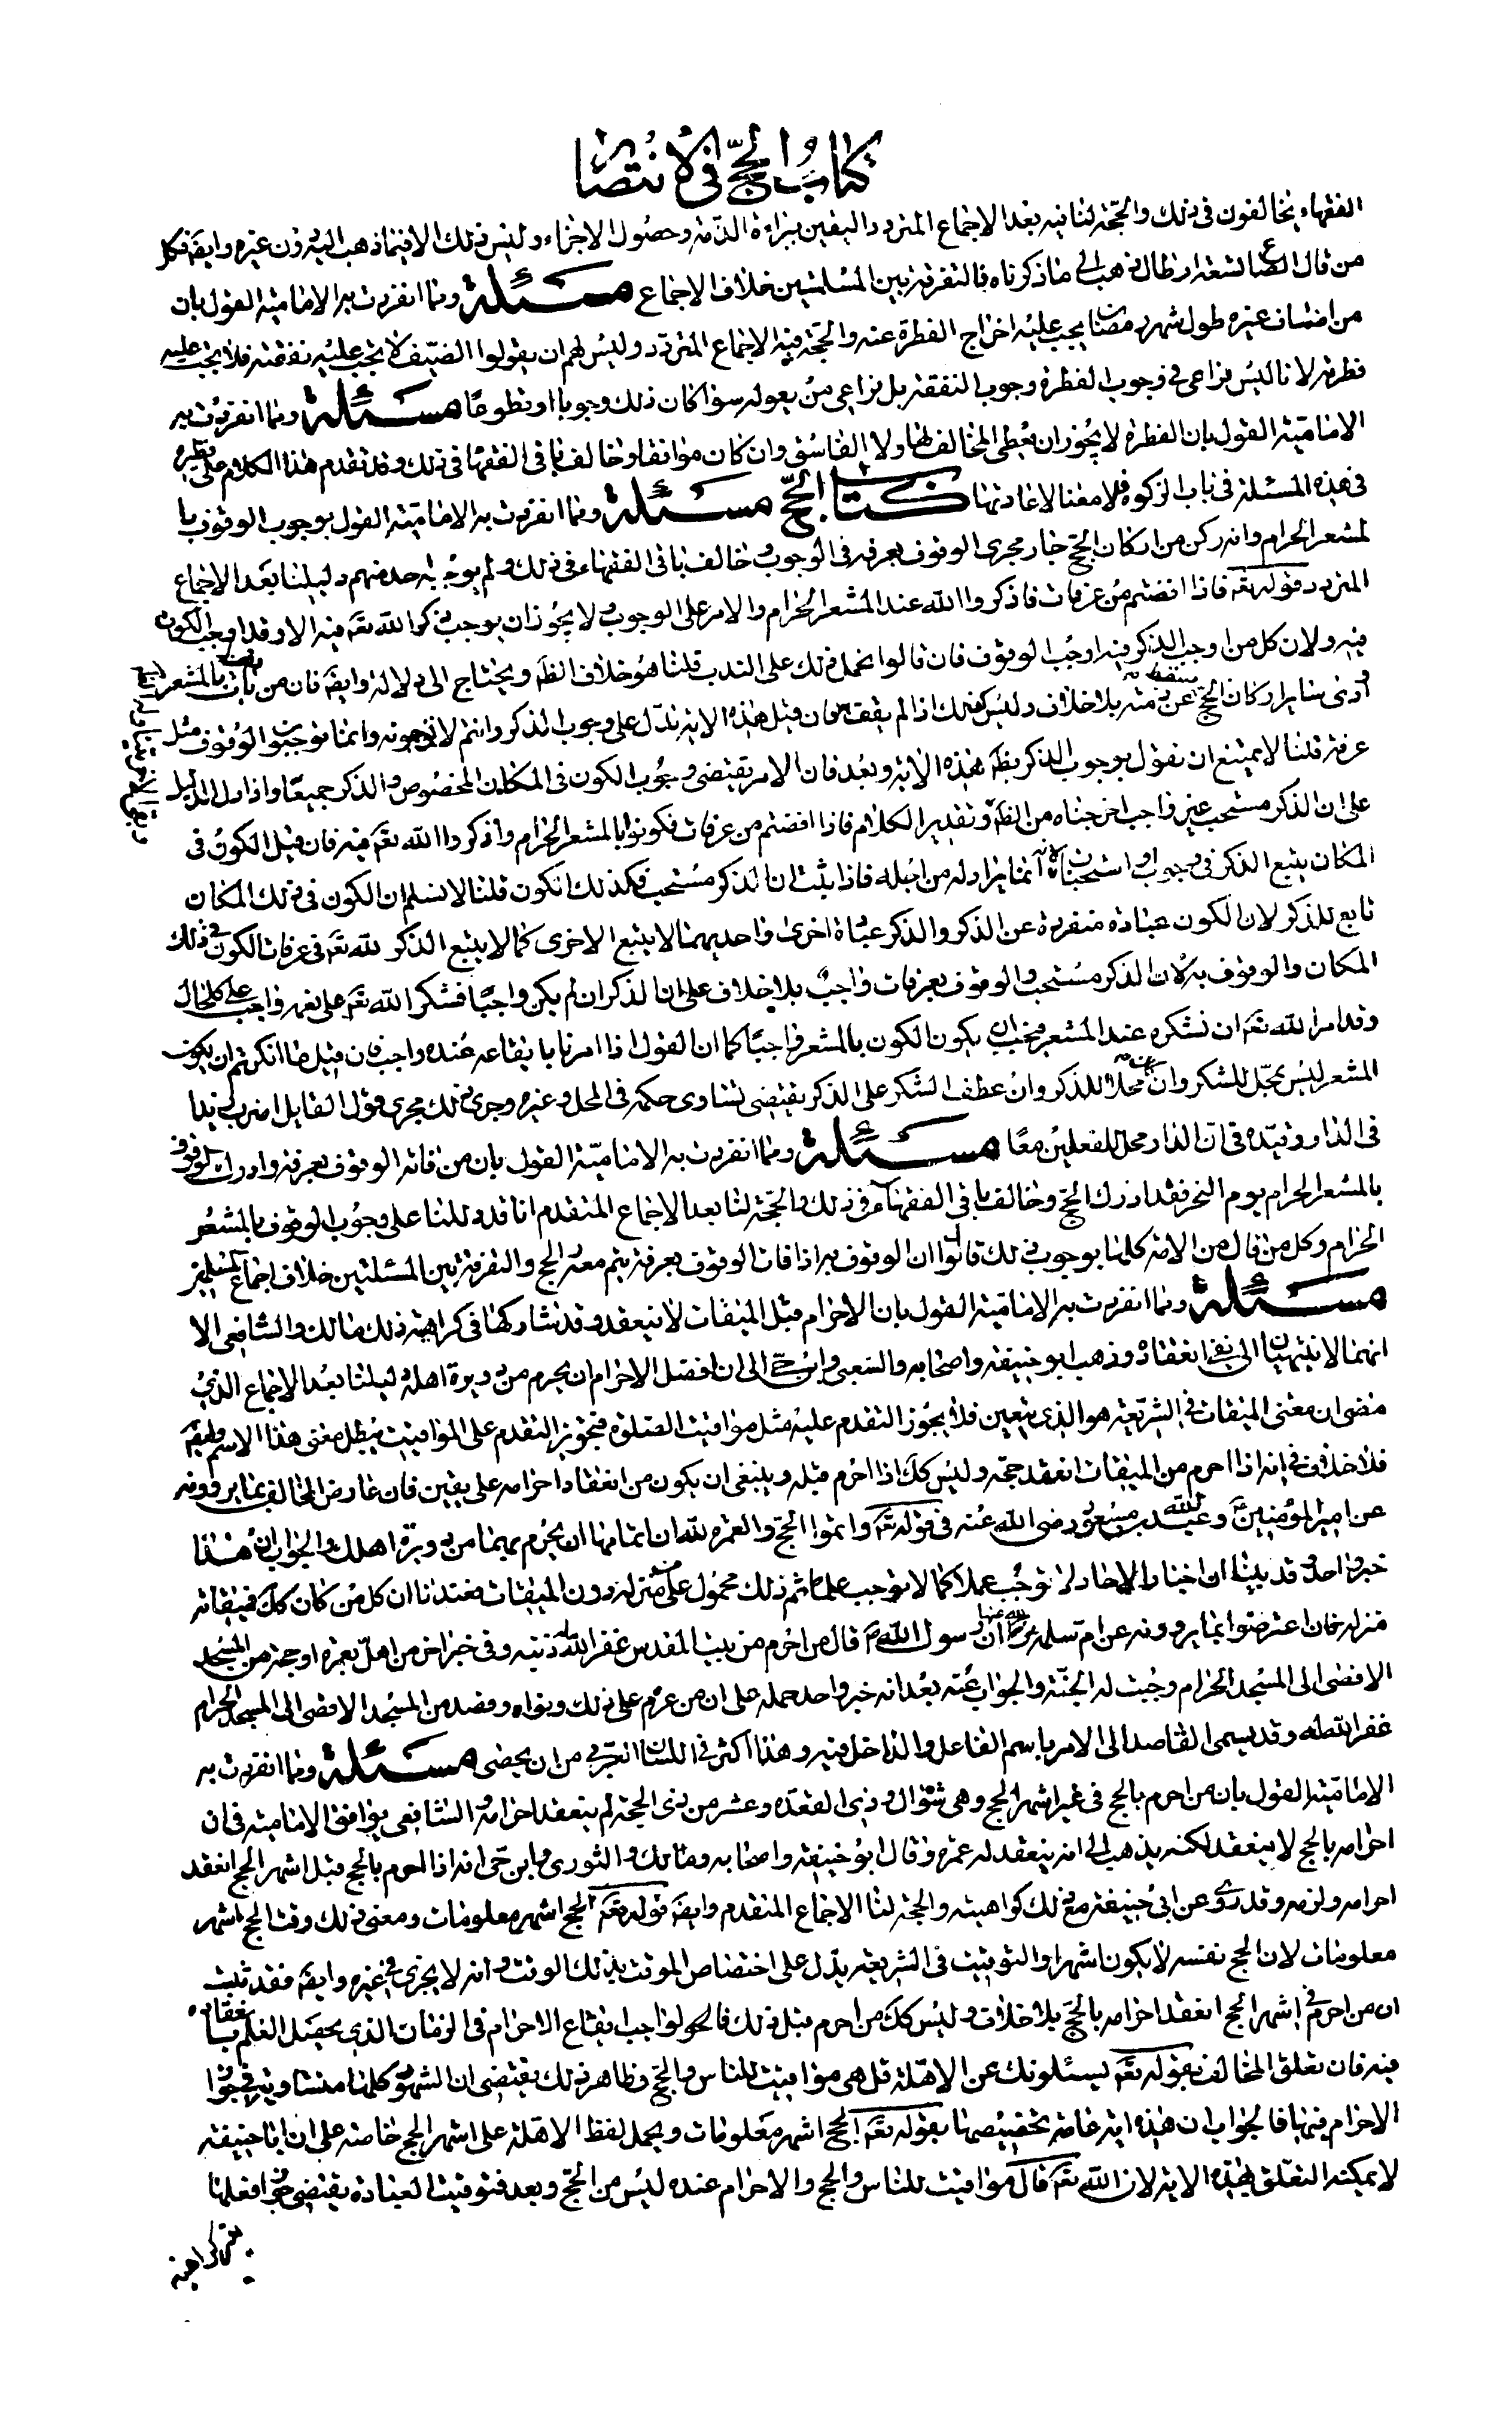 كتاب الحجّ فى الانتصار
الفقهاء يخالفون فى ذلك والحجّة لنا فيه بعد الاجماع المتردد اليقين ببراءة الذّمة وحصول الاجزاء وليس ذلك الا فيما ذهب اليه دون غيره وايضَ فكل
من قال الصاع تسعة ارطال ذهب الى ما ذكرناه فالتفرقة بين المسئلتين خلاف الاجماع مسئلة ومما انفردت به الامامية القول بان
من اضاف غيره طول شهر رمضان يجب عليه اخراج الفطرة عنه والحجّة فيه الاجماع المتردد وليس لهم ان يقولوا الضيف لا يجب عليه نفقته فلا يجب عليه
فطرته لانا ليس نراعى فى وجوب الفطرة وجوب النفقة بل نراعى من يعوله سواء كان ذلك وجوبا او تطوعا مسئلة ومما انفردت به
الاماميّة القول بان الفطرة لا يجوز ان يعطى المخالف لها ولا الفاسق وان كان موافقا وخالف باقى الفقهاء فى ذلك وقد تقدم هذا الكلام على نظيره
فى هذه المسئلة فى باب الزكوة فلا معنا لاعادتها كتاب الحجّ مسئلة ومما انفردت به الاماميّة القول بوجوب الوقوف با
لمشعر الحرام وانه ركن من اركان الحجّ جار مجرى الوقوف بعرفة فى الوجوب وخالف باقى الفقهاء فى ذلك ولم يوجبه احد منهم دليلنا بعد الاجماع
المتردد قوله تعَ فاذا افضتم من عرفات فاذكروا الله عند المشعر الحرام والامر على الوجوب ولا يجوز ان يوجب ذكر الله تعَ فيه الا وقد اوجب الكون
فيه ولان كل من اوجب الذكر فيه اوجب الوقوف فان قالوا نحمل ذلك على الندب قلنا هو خلاف الظَ ويحتاج الى دلالة وايضَ فان من بات بالمشعر
وادى سائر اركان الحجّ سقط عن ذمته بلا خلاف وليس كذلك اذا لم يقف فان قيل هذه الاية تدّل على وجوب الذكر وانتم لا توجبونه وانما توجبون الوقوف مثل
عرفة قلنا لا يمتنع ان نقول بوجوب الذكر بظَ هذه الاية وبعد فان الامر يقتضى وجوب الكون فى المكان المخصوص والذكر جميعا واذا دل الدليل
على ان الذكر مستحب غير واجب اخرجناه من الظَ وتقدير الكلام فاذا افضتم من عرفات فكونوا بالمشعر الحرام واذكروا الله تعَ فيه فان قيل الكون فى
المكان يتبع الذكر فى وجوب او استحباب لانه انما يراد له من اجله فاذا يثبت ان الذكر مستحب فكذلك الكون قلنا لا نسلم ان الكون فى ذلك المكان
تابع للذكر لان الكون عبادة منفردة عن الذكر والذكر عبادة اخرى فاحديهما لا يتبع الاخرى كما لا يتبع الذكر لله تعَ فى عرفات الكون فى ذلك
المكان والوقوف به لان الذكر مستحب والوقوف بعرفات واجب بلا خلاف على ان الذكر ان لم يكن واجبا فشكر الله تعَ على نعمه واجب على كل حال
وقد امر الله تعَ ان نشكره عند المشعر فيجب ان يكون الكون بالمشعر واجبا كما ان القول اذا امرنا بايقاعه عنده واجب فان قيل ما انكرتم ان يكون
المشعر ليس بمحّل للشكر وان كان محلا للذكر وان عطف الشكر على الذكر يقتضى تساوى حكمه فى المحل وغيره وجرى ذلك مجرى قول القايل اضرب زيدا
فى الدار وقيّده فى ان الدار محل للفعلين معًا مسئلة ومما انفردت به الاماميّة القول بان من فاته الوقوف بعرفة وادرك الوقوف
بالمشعر الحرام يوم النحر فقد ادرك الحجّ وخالف باقى الفقهاء فى ذلك والحجّة لنا بعد الاجماع المتقدم انا قد دللنا على وجوب الوقوف بالمشعر
الحرام وكل من قال من الامة كلها بوجوب ذلك قالوا ان الوقوف به اذا فات الوقوف بعرفة يتم معه الحج والتفرقة بين المسئلتين خلاف اجماع المسلمين
مسئلة ومما انفردت به الاماميّة القول بان الاحرام قبل الميقات لا ينعقد وقد شاركها فى كراهية ذلك مالك والشافعى الا
انهما لا ينتهيان الى نفى انعقاده وذهب ابو حنيفة واصحابه والشعبى وابن حىّ الى ان افضل الاحرام ان يحرم من دويرة اهله دليلنا بعد الاجماع الذى
مضى ان معنى الميقات فى الشريعة هو الذى يتعين فلا يجوز التقدم عليه مثل مواقيت الصلوة فتجويز التقدم على المواقيت يبطل معنى هذا الاسم وايضَ
فلا خلاف فى انه اذا احرم من الميقات انعقد حجه وليس ككَ اذا احرم قبله وينبغى ان يكون من انعقاد احرامه على يقين فان عارض المخالف بما يروونه
عن امير المؤمنين وعبد الله بن مسعود رضى الله عنه فى قوله تعَ واتموا الحجّ والعمرة لله ان اتمامها ان يحرم بهما من دويرة اهلك والجواب ان هذا
خبر واحد وقد بينا ان اخبار الاحاد لا توجب عملا كما لا توجب علما ثم ذلك محمول على من منزله دون الميقات فعندنا ان كل من كان كك فميقاته
منزله فان اعترضوا بما يروونه عن ام سلمه رضى الله عنها ان رسول الله ص قال من احرم من بيت المقدس غفر الله له ذنبه وفى خبر اخر من اهل بعمرة او حجة من المسجد
الاقصى الى المسجد الحرام وجبت له الجنّة والجواب عنه بعد انه خبر واحد حمله على ان من عزم على ذلك ونواه وقصد من المسجد الاقصى الى المسجد الحرام
غفر الله له وقد يسمى القاصد الى الامر باسم الفاعل والداخل فيه وهذا اكثر فى اللسان العربى من ان يحصى مسئلة ومما انفردت به
الاماميّة القول بان من احرم بالحج فى غير اشهر الحج وهى شوّال وذى القعدة وعشر من ذى الحجّة لم ينعقد احرامه والشافعى يوافق الامامية فى ان
احرامه بالحج لا ينعقد لكنه يذهب الى انه ينعقد له عمرة وقال ابو حنيفة واصحابه ومالك والثورى وابن حىّ انه اذا احرم بالحج قبل اشهر الحج انعقد
احرامه ولزمه وقد روى عن ابى حنيفة مع ذلك كراهيته والحجة لنا الاجماع المتقدم وايضَ قوله تعَ الحج اشهر معلومات ومعنى ذلك وقت الحج اشهر
معلومات لان الحج نفسه لا يكون اشهرا والتوقيت فى الشريعة يدّل على اختصاص الموقت بذلك الوقت وانه لا يجزى فى غيره وايضَ فقد ثبت
ان من احرم فى اشهر الحج انعقد احرامه بالحجّ بلا خلاف وليس ككَ من احرم قبل ذلك فالواجب ايقاع الاحرام فى الزمان الذى يحصل العلم بانعقاده
فيه فان تعلق المخالف بقوله تعَ يسئلونك عن الاهّلة قل هى مواقيت للناس والحجّ فظاهر ذلك يقتضى ان الشهور كلها متساوية فى جواز
الاحرام فيها فالجواب ان هذه اية عامة نخصيصها بقوله تعَ الحج اشهر معلومات ويحمل لفظ الاهلة على اشهر الحج خاصة على ان ابا حنيفة
لا يمكنه التعلق بهذه الاية لان الله تعَ قال مواقيت للناس والحج والاحرام عنده ليس من الحجّ وبعد فتوقيت العبادة يقتضى جواز فعلها